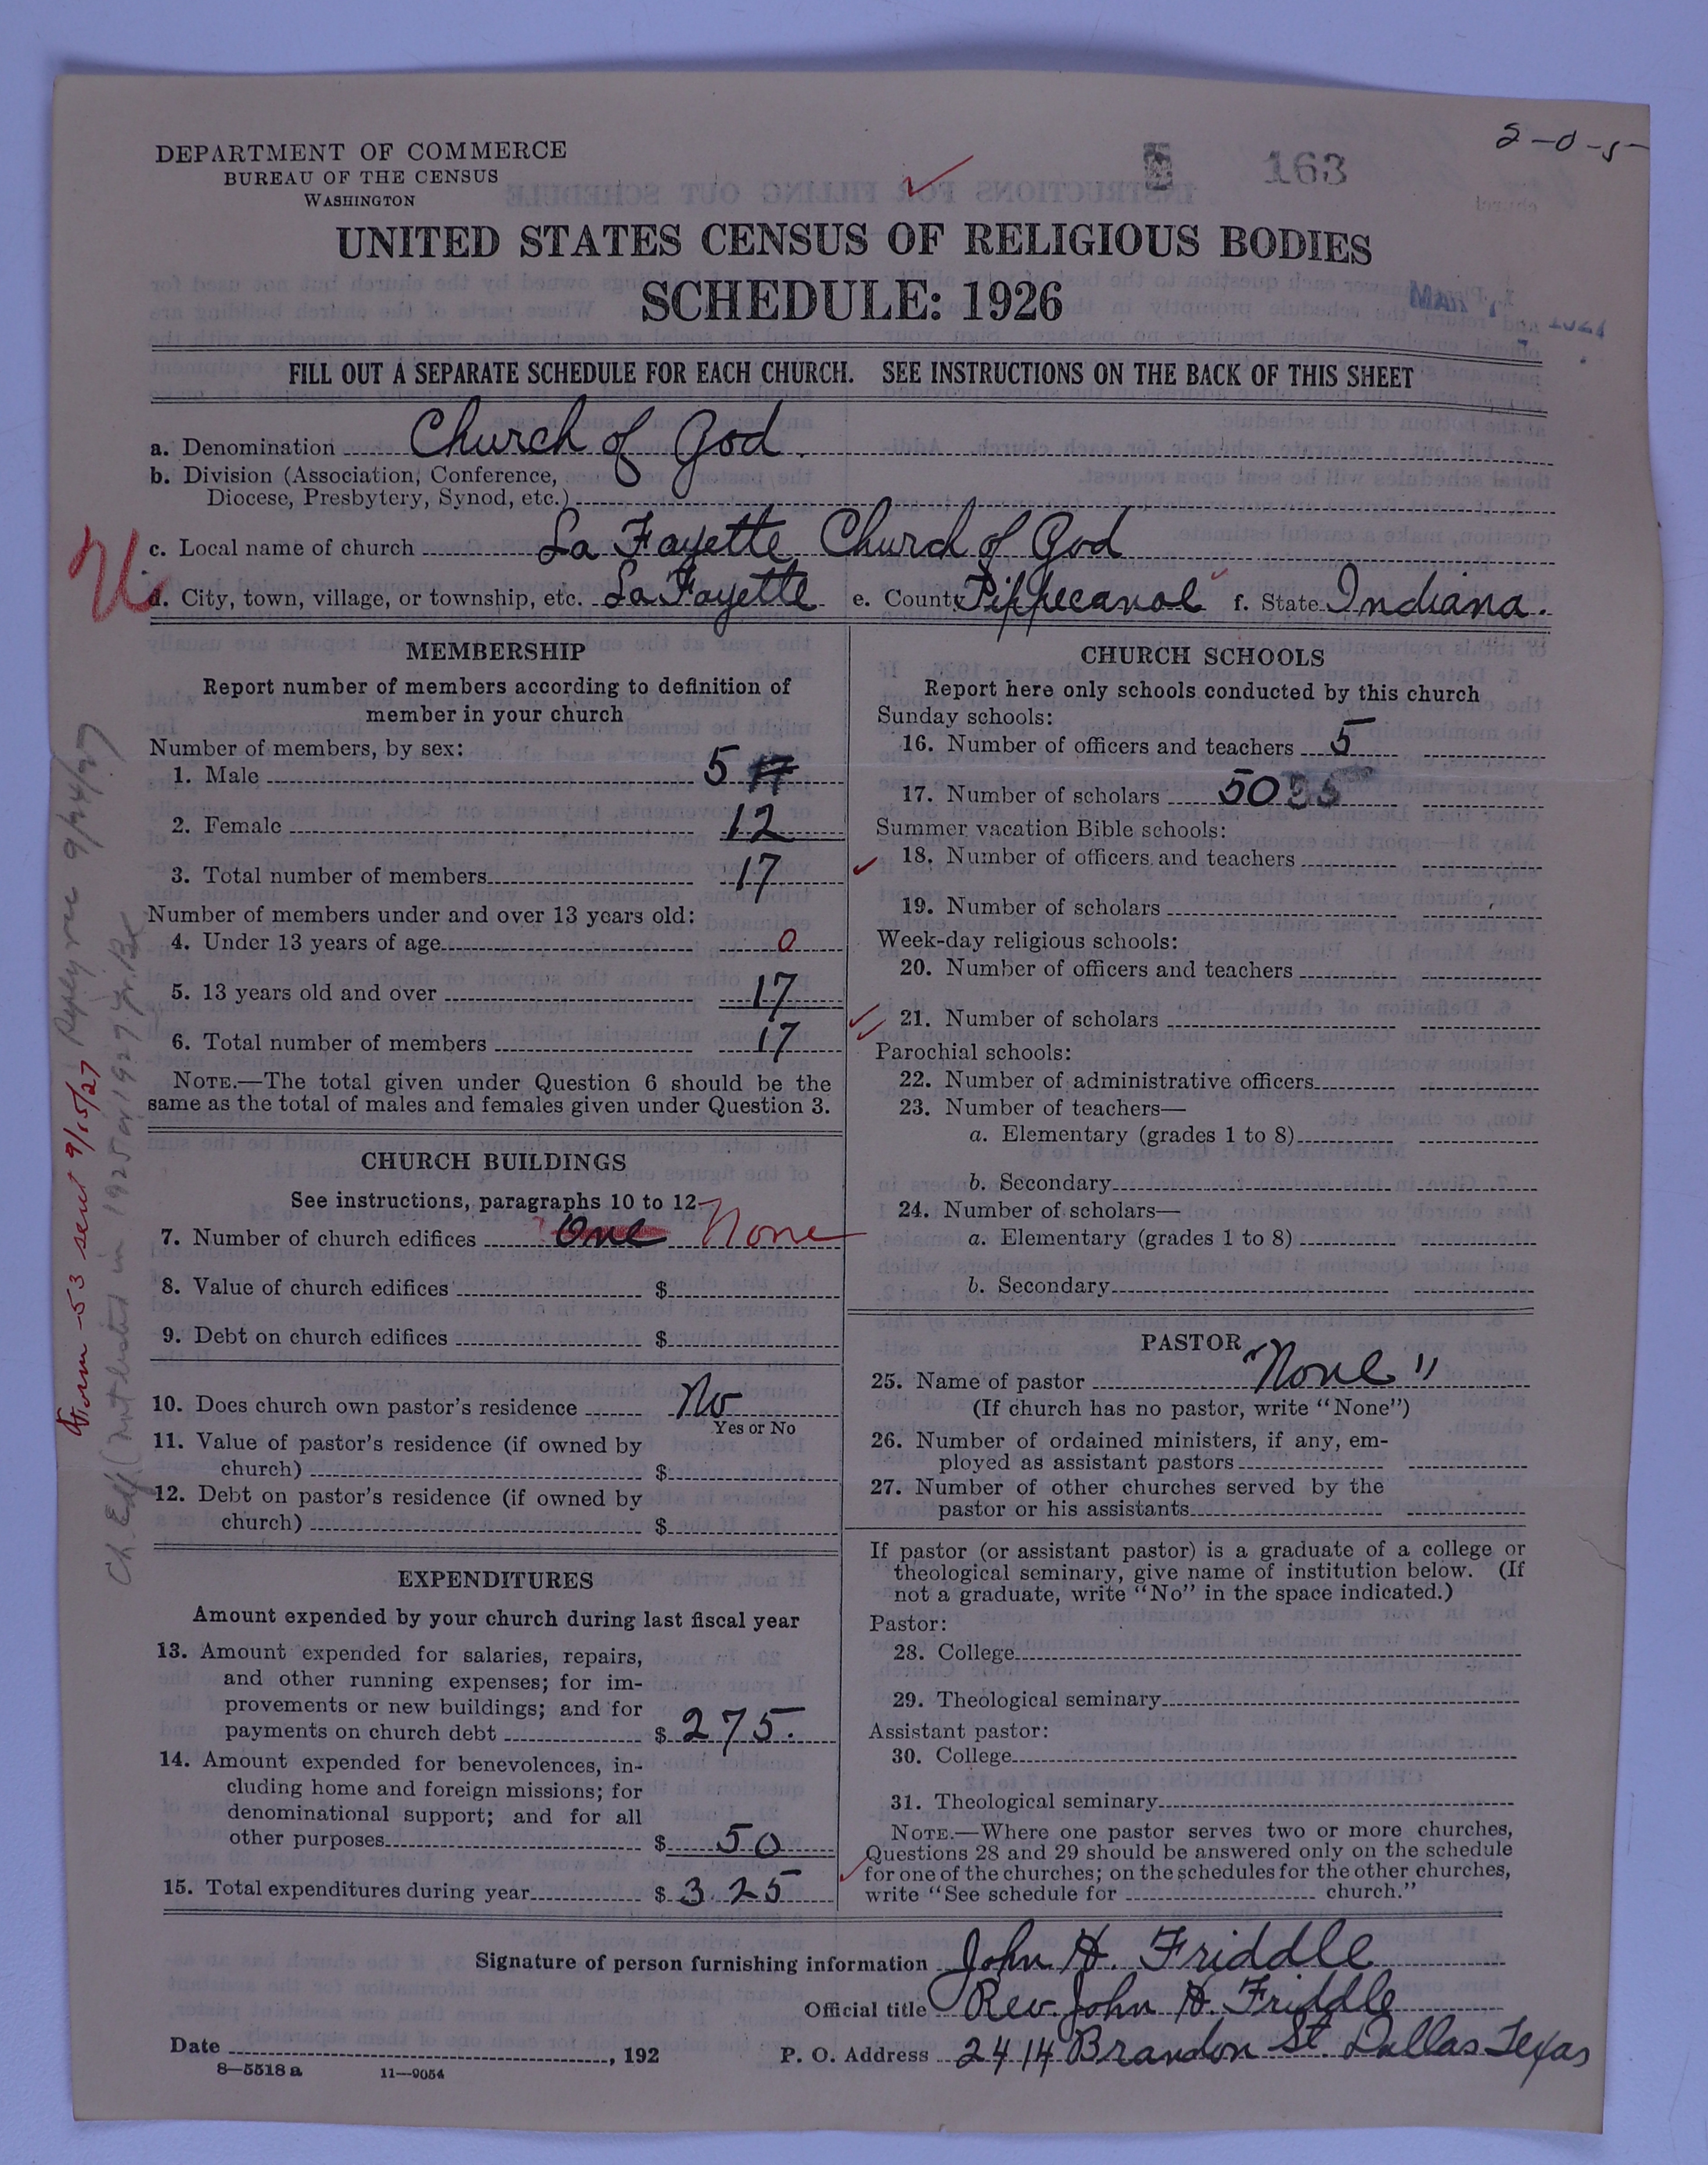 2-0-5-
DEPARTMENT OF COMMERCE
BUREAU OF THE CENSUS
WASHINGTON
163
UNITED STATES CENSUS OF RELIGIOUS BODIES
SCHEDULE: 1926
MAR 1927
FILL OUT A SEPARATE SCHEDULE FOR EACH CHURCH. SEE INSTRUCTIONS ON THE BACK OF THIS SHEET
a. Denomination Church of God.
b. Division (Association, Conference,
Diocese, Presbytery, Synod, etc.)
c. Local name of church La Fayette Church of God
U
d. City, town, village, or township, etc. La Fayette e. County Pippecanoe f. State Indiana.
MEMBERSHIP
Report number of members according to definition of
member in your church
Number of members, by sex:
1. Male 5
2. Female 12
3. Total number of members 17
Number of members under and over 13 years old:
4. Under 13 years of age 0
5. 13 years old and over 17
6. Total number of members 17
NOTE.—The total given under Question 6 should be the
same as the total of males and females given under Question 3.
CHURCH BUILDINGS
See instructions, paragraphs 10 to 12
7. Number of church edifices One None
8. Value of church edifices $
9. Debt on church edifices $
10. Does church own pastor's residence No
Yes or No
11. Value of pastor's residence (if owned by
church) $
12. Debt on pastor's residence (if owned by
church) $
EXPENDITURES
Amount expended by your church during last fiscal year
13. Amount expended for salaries, repairs,
and other running expenses; for im-
provements or new buildings; and for
payments on church debt $ 275.
14. Amount expended for benevolences, in-
cluding home and foreign missions; for
denominational support; and for all
other purposes $ 50
15. Total expenditures during year $ 325
CHURCH SCHOOLS
Report here only schools conducted by this church
Sunday schools:
16. Number of officers and teachers 5
17. Number of scholars 50
Summer vacation Bible schools:
18. Number of officers and teachers
19. Number of scholars
Week-day religious schools:
20. Number of officers and teachers
21. Number of scholars
Parochial schools:
22. Number of administrative officers
23. Number of teachers—
a. Elementary (grades 1 to 8)
b. Secondary
24. Number of scholars—
a. Elementary (grades 1 to 8)
b. Secondary
PASTOR
25. Name of pastor "None"
(If church has no pastor, write "None")
26. Number of ordained ministers, if any, em-
ployed as assistant pastors
27. Number of other churches served by the
pastor or his assistants
If pastor (or assistant pastor) is a graduate of a college or
theological seminary, give name of institution below. (If
not a graduate, write "No" in the space indicated.)
Pastor:
28. College
29. Theological seminary
Assistant pastor:
30. College
31. Theological seminary
NOTE.—Where one pastor serves two or more churches,
Questions 28 and 29 should be answered only on the schedule
for one of the churches; on the schedules for the other churches,
write "See schedule for church."
Signature of person furnishing information John H. Friddle
Official title Rev. John H. Friddle
Date , 192
P. O. Address 2414 Brandon St. Dallas Texas
8—5518 a 11—9054
Form -53 sent 9/15/27 Reply rec 9/24/27
Ch. Edf. (not listed in 1925 or 1927 Yr. Bk.